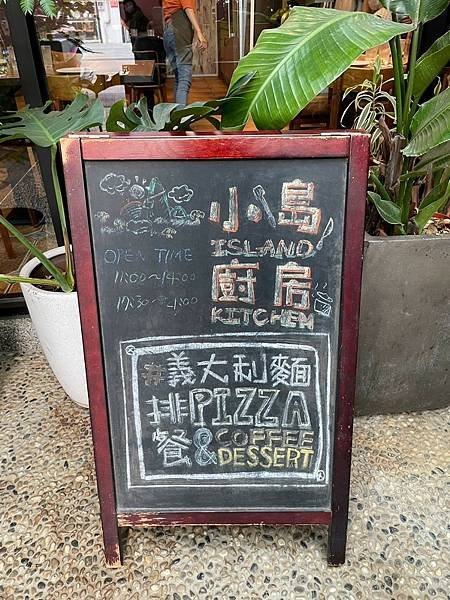 小島
ISLAND
廚居
KITCHEN
OPEN TIME
11:00~14:00
#義大利麵
排PIZZA
餐&COFFEE
DESSERT